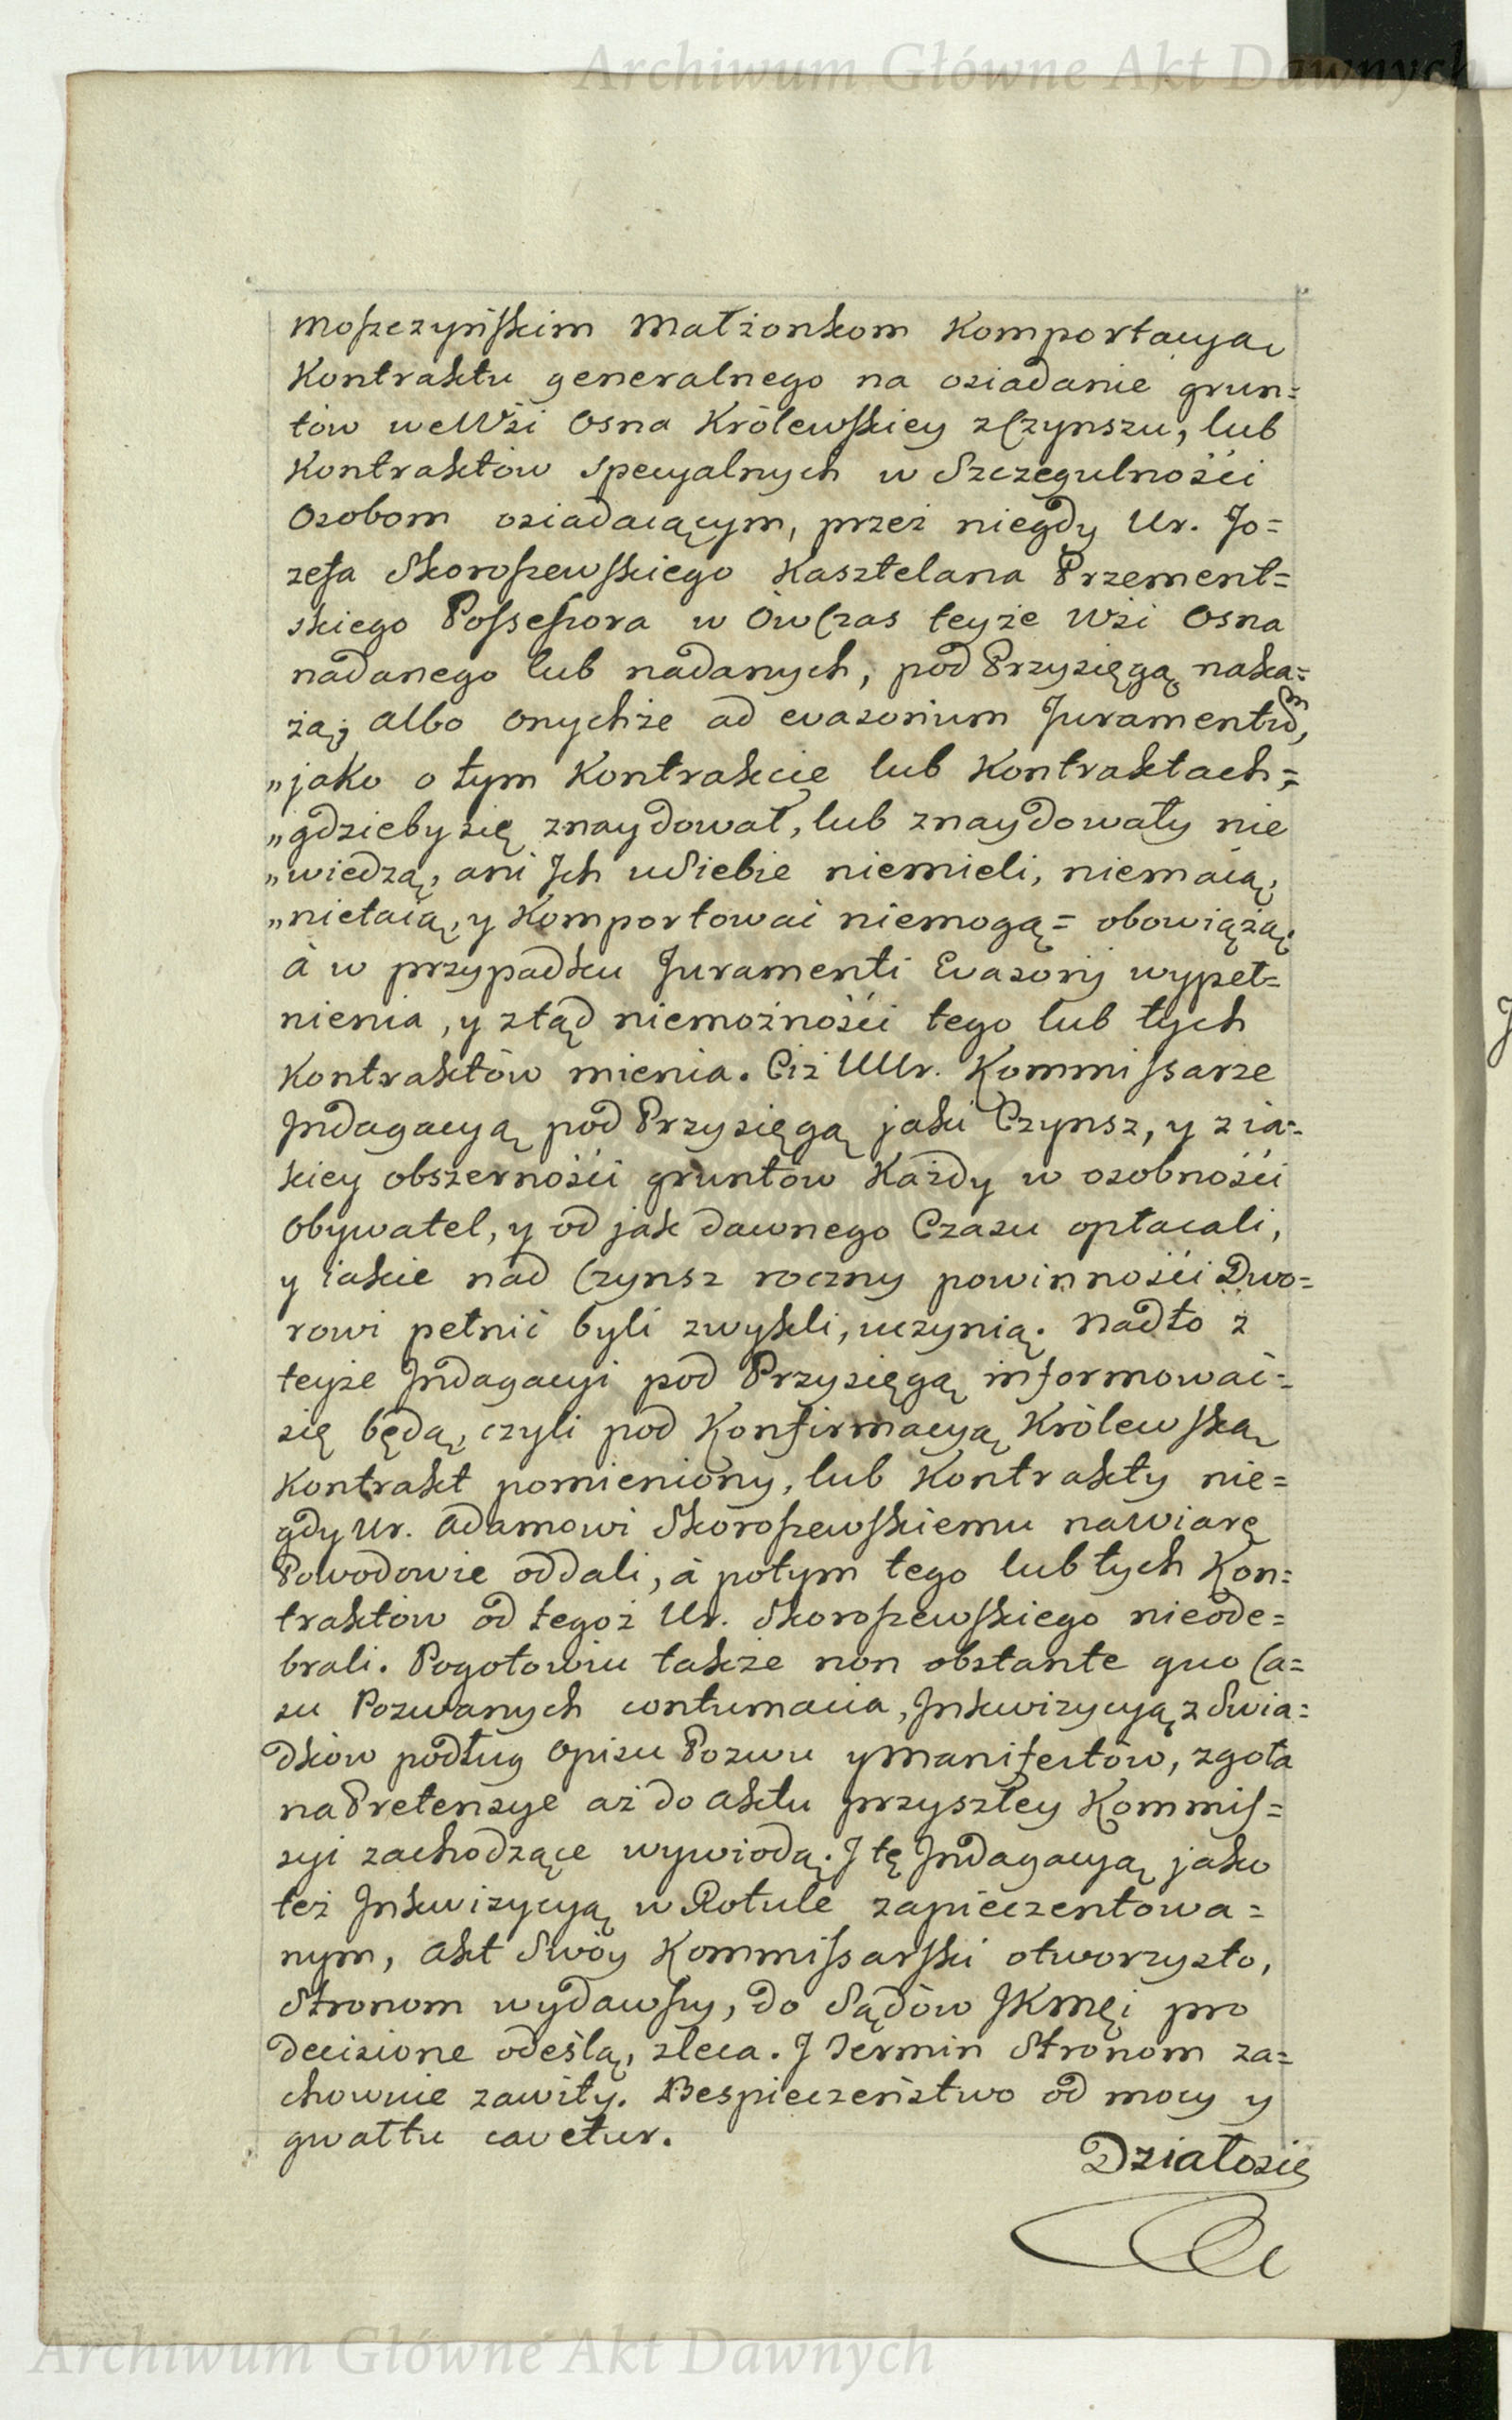 Archiwum Główne Akt Dawnych
Moszczyńskim Małżonkom Komportacyą
Kontraktu generalnego na osiadanie grun=
tow weWsi Osna Królewskiey z Czynszu, lub
Kontraktów specyalnych w Szczegulności
Osobom osiadaiącym, przez niegdy Ur. Jo=
zefa Skoroszewskiego Kasztelana Przement=
skiego Possessora w Ów Czas teyże Wsi Osna
nadanego lub nadanych, pod Przysięgą naka=
żą; albo onychże ad evasorium Juramentum,
„jako o tym Kontrakcie lub Kontraktach,=
„gdzieby się znaydował, lub znaydowały nie
„wiedzą, ani Jch uSiebie niemieli, niemaią,
„nietaią, y Komportować niemogą= obowiążą;
à w przypadku Juramenti Evasorij wypeł=
nienia, y ztąd niemożności tego lub tych
Kontraktów mienia. Ciż UUr. Kommissarze
Jndagacyą pod Przysięgą jaki Czynsz, y z ia=
kiey obszerności gruntow Każdy w osobności
Obywatel, y od jak dawnego Czasu opłacali,
y iakie nad Czynsz roczny powinności Dwo=
rowi pełnić byli zwykli, uczynią. Nadto z
teyże Jndagacyi pod Przysięgą informować=
się będą, czyli pod Konfirmacyą Królewską
Kontrakt pomieniony, lub Kontrakty nie=
gdy Ur. Adamowi Skoroszewskiemu nawiarę
Powodowie oddali, à potym tego lub tych Kon=
traktów od tegoż Ur. Skoroszewskiego nieode=
brali. Pogotowiu także non obstante quo Ca=
su Pozwanych contumacia, Jnkwizycyą z Swia=
dkow podług Opisu Pozwu y Manifestów, zgoła
na Pretensye aż do Aktu przyszłey Kommis=
syi zachodzące wywiodą. J tę Jndagacyą jako
też Jnkwizycyą w Rotule zapieczentowa=
nym, Akt Swóy Kommissarski otworzysto,
Stronom wydawszy, do Sądów JKMci pro
decisione odeślą, zleca. J Termin Stronom za=
chownie zawity. Bespieczeństwo od mocy y
gwałtu cavetur.
Działo się
Archiwum Główne Akt Dawnych